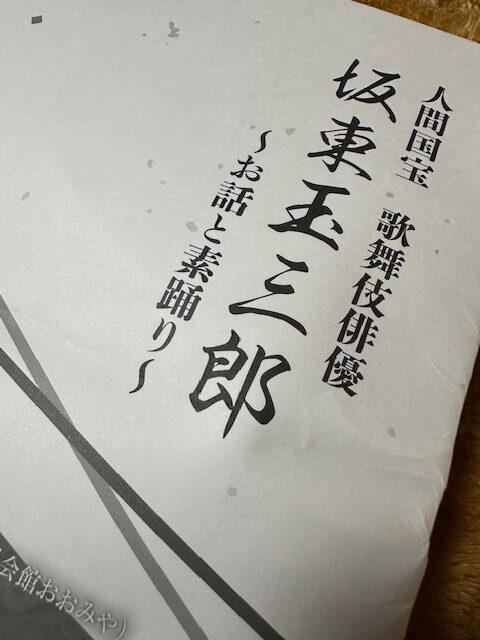 人間国宝 歌舞伎俳優
坂東玉三郎
～お話と素踊り～
会館おおみや)